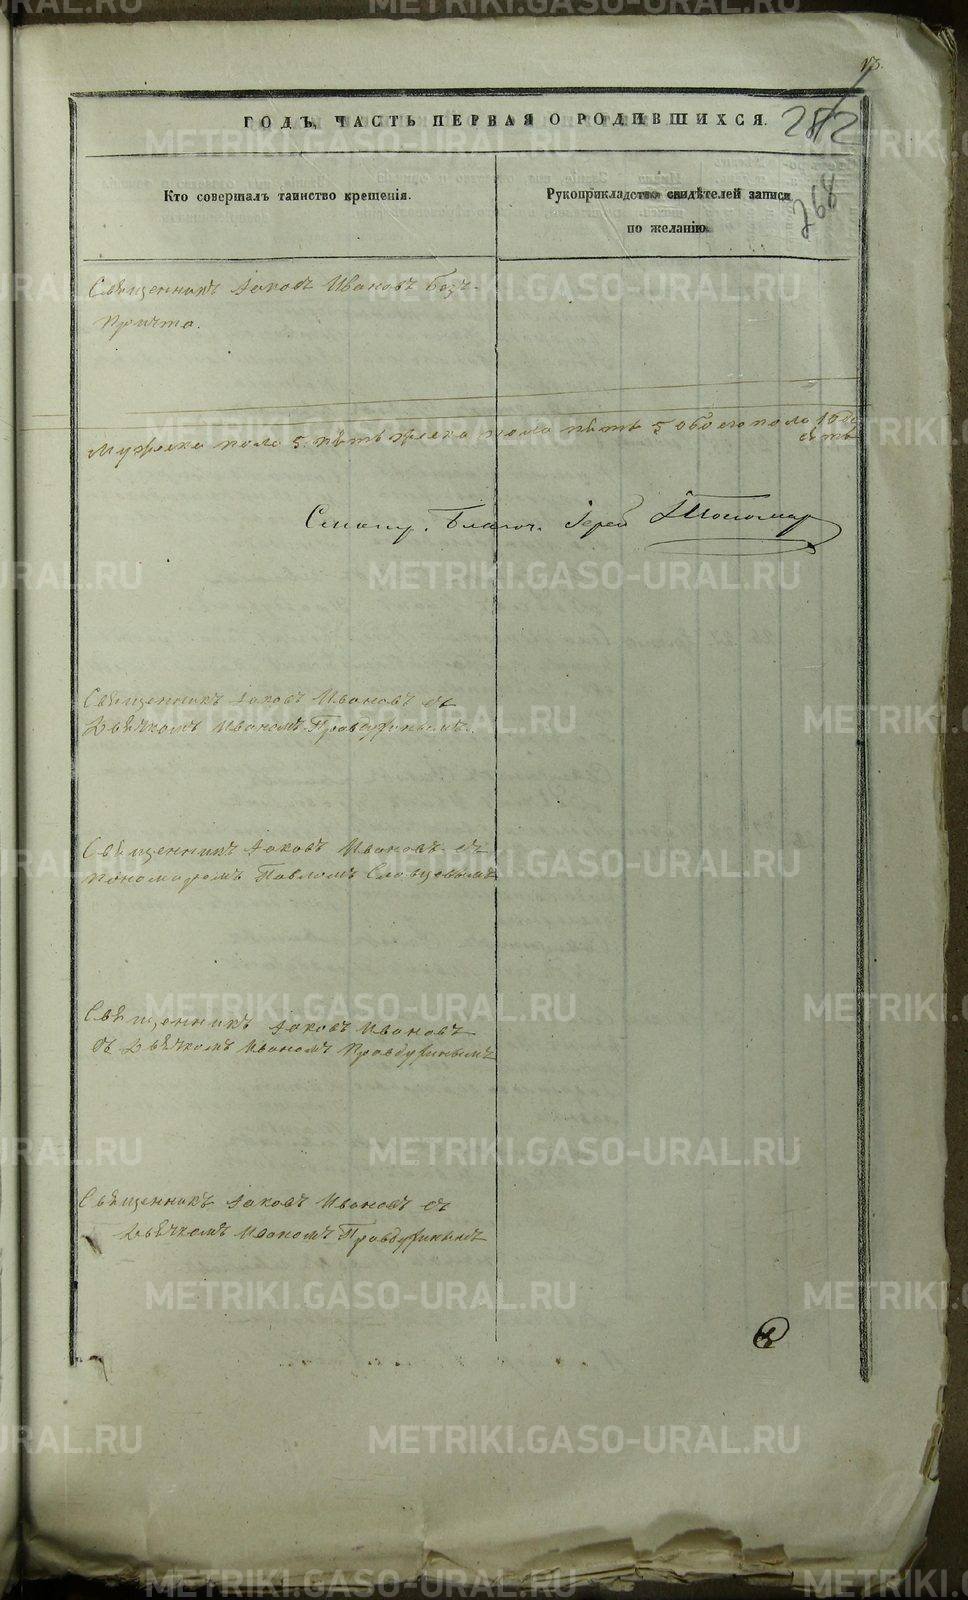 13.
ГОДЪ, ЧАСТЬ ПЕРВАЯ О РОДИВШИХСЯ.
252
268
Кто совершалъ таинство крещенія.
Рукоприкладство свидѣтелей записи
по желанію.
Священникъ Іаковъ Ивановъ безъ
причта.
Мужеска пола 5. пять женска пола пять 5 обоего пола 10 де
сять
Смотр. Благоч. Іерей
Священникъ Іаковъ Ивановъ съ
Дьячкомъ Иваномъ Правдухинымъ.
Священникъ Іаковъ Ивановъ съ
пономаремъ Павломъ Словцовымъ
Священникъ Іаковъ Ивановъ
съ Дьячкомъ Иваномъ Правдухинымъ
Священникъ Іаковъ Ивановъ съ
Дьячкомъ Иваномъ Правдухинымъ
METRIKI.GASO-URAL.RU